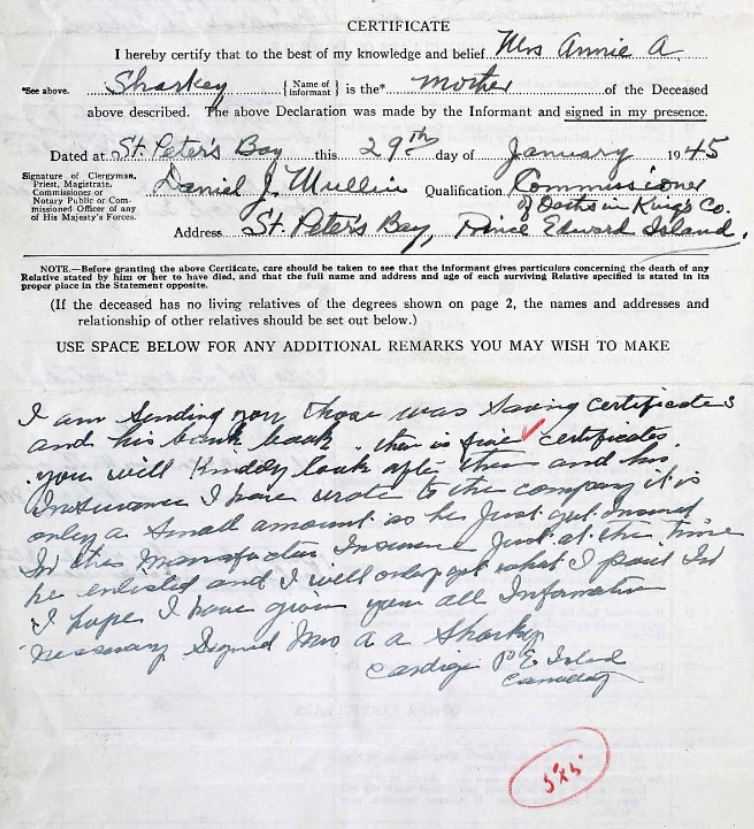 CERTIFICATE
I hereby certify that to the best of my knowledge and belief Mrs Annie A.
*See above. Sharkey {Name of informant} is the* mother of the Deceased
above described. The above Declaration was made by the Informant and signed in my presence.
Dated at St. Peter's Bay this 29th day of January 1945
Signature of Clergyman, Priest, Magistrate, Commissioner or Notary Public or Commissioned Officer of any of His Majesty's Forces. Daniel J. Mullin Qualification Commissioner
of Oaths in King's Co.
Address St. Peter's Bay, Prince Edward Island.
NOTE.—Before granting the above Certificate, care should be taken to see that the informant gives particulars concerning the death of any
Relative stated by him or her to have died, and that the full name and address and age of each surviving Relative specified is stated in its
proper place in the Statement opposite.
(If the deceased has no living relatives of the degrees shown on page 2, the names and addresses and
relationship of other relatives should be set out below.)
USE SPACE BELOW FOR ANY ADDITIONAL REMARKS YOU MAY WISH TO MAKE
I am sending you those was Saving certificates
and his bank book. ther is five certificates.
you will Kindly look after them and his
Insurance I have wrote to the company it is
only a small amount as he Just got Insured
In the Insurance Just at the time
he enlisted and I will only get what I paid In
I hope I have given you all Information
Signed Mrs A A Sharkey
Cardigan P E Island
Canada
5x5